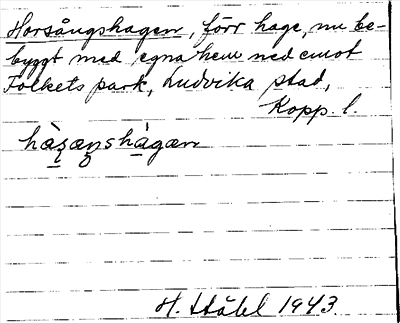 Horsångshagen, förr hage, nu be-
byggt med egna hem ned emot
Folkets park, Ludvika stad,
Kopp. l.
hàʂæŋshàgan
H. Ståhl 1943